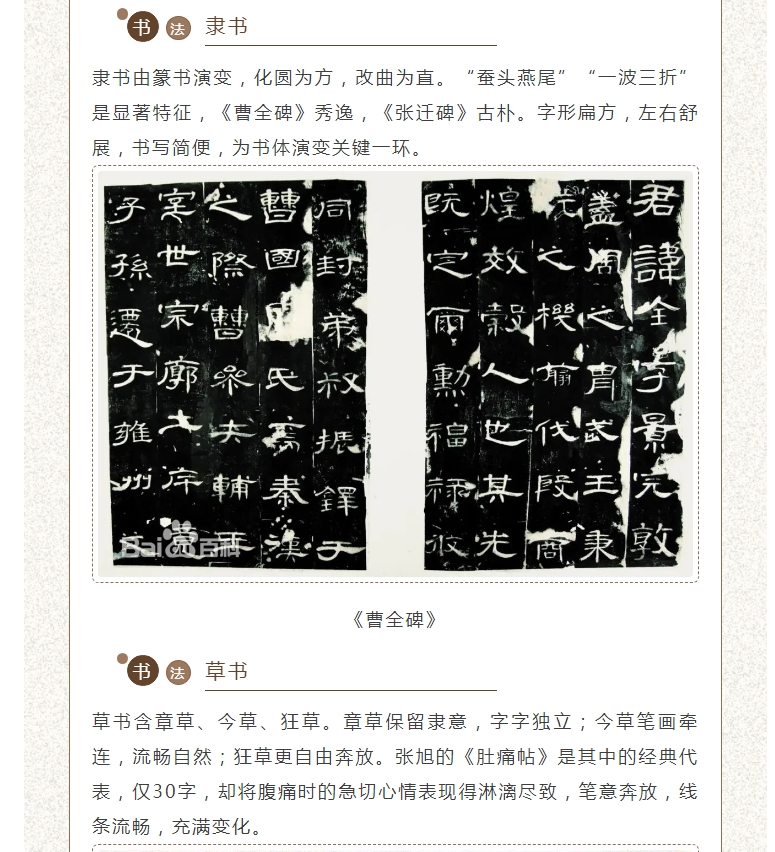 书 法 隶书
隶书由篆书演变，化圆为方，改曲为直。“蚕头燕尾”“一波三折”
是显著特征，《曹全碑》秀逸，《张迁碑》古朴。字形扁方，左右舒
展，书写简便，为书体演变关键一环。
君諱全字景完敦
蓋周之胄武王秉
之機翦伐殷商
煌效穀人也其先
既定爾勳福祿攸
同封弟叔振鐸于
曹國 氏焉秦漢
之際曹參夾輔王
室世宗廓土斥竟
子孫遷于雍州
Baidu百科
《曹全碑》
书 法 草书
草书含章草、今草、狂草。章草保留隶意，字字独立；今草笔画牵
连，流畅自然；狂草更自由奔放。张旭的《肚痛帖》是其中的经典代
表，仅30字，却将腹痛时的急切心情表现得淋漓尽致，笔意奔放，线
条流畅，充满变化。